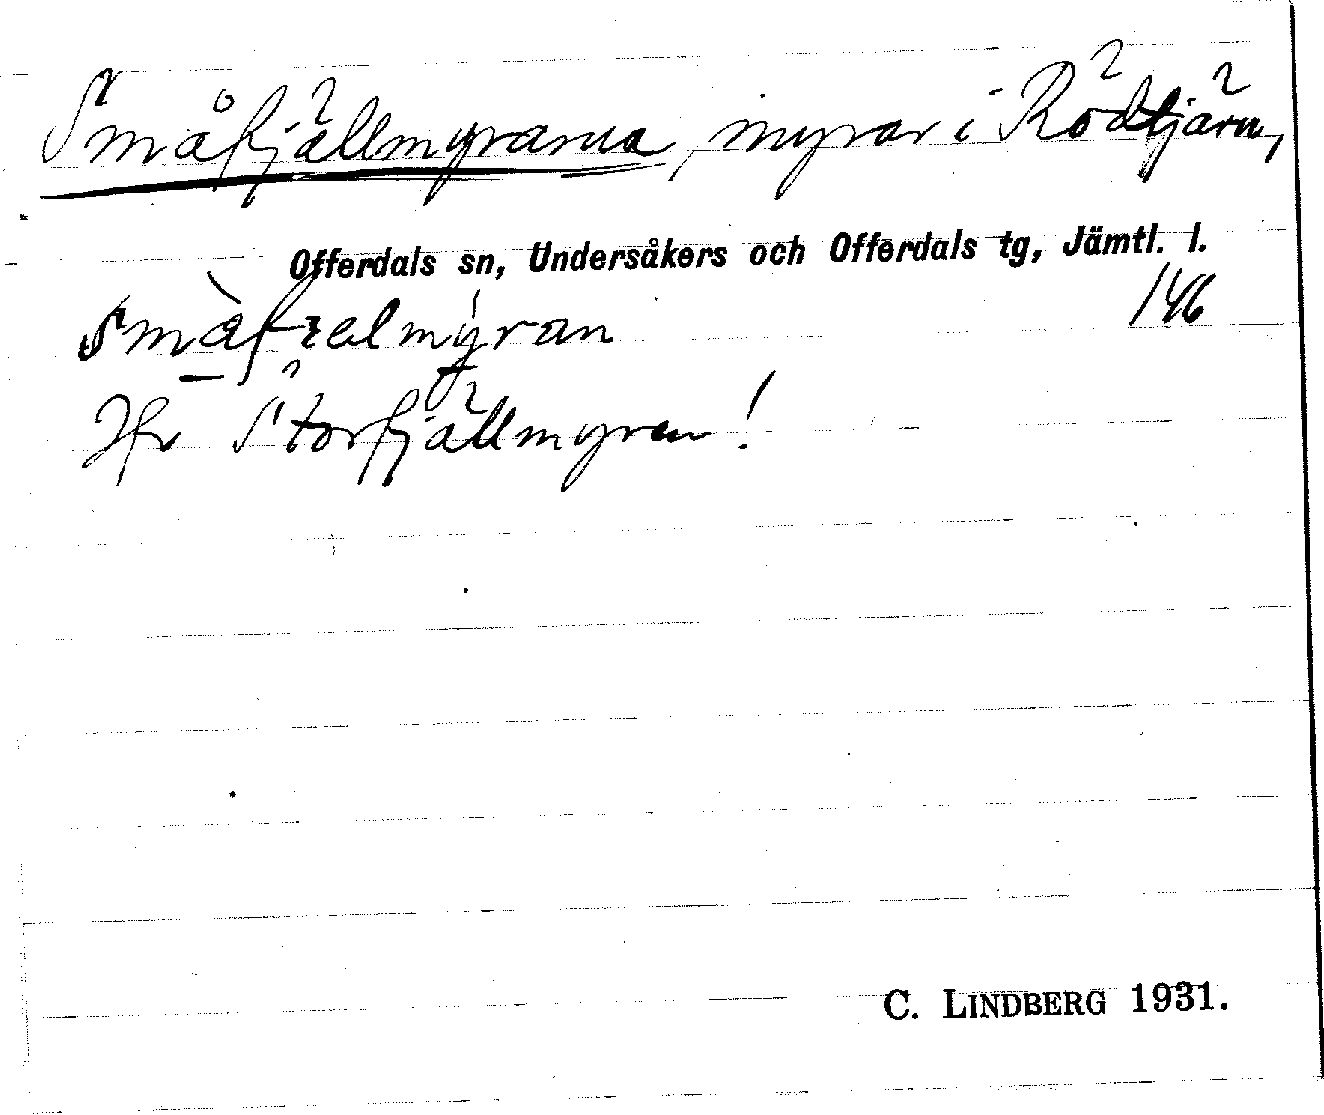 Småfjällmyrarna, myrar i Rödtjärn,
Offerdals sn, Undersåkers och Offerdals tg, Jämtl. l.
146
Jfr Storfjällmyren!
C. LINDBERG 1931.